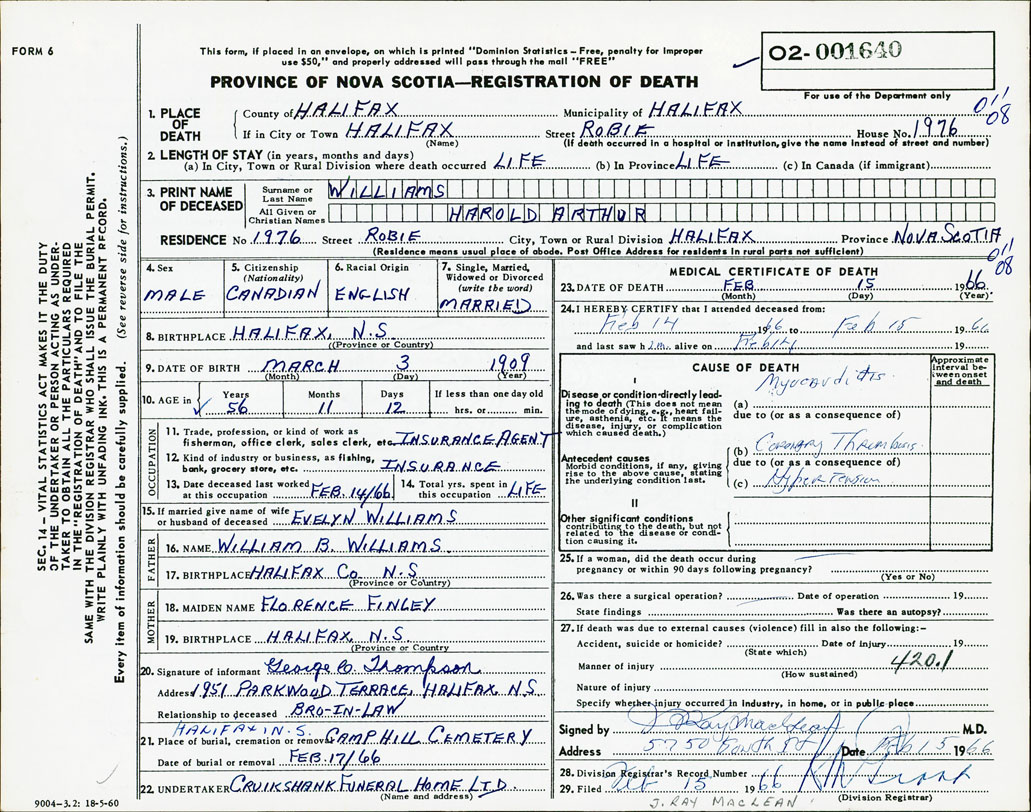 FORM 6
This form, if placed in an envelope, on which is printed "Dominion Statistics – Free, penalty for improper
use $50," and properly addressed will pass through the mail "FREE"
PROVINCE OF NOVA SCOTIA—REGISTRATION OF DEATH
O2-001640
For use of the Department only
1. PLACE OF DEATH
County of HALIFAX Municipality of HALIFAX
If in City or Town HALIFAX Street ROBIE House No. 1976
(Name) (If death occurred in a hospital or institution, give the name instead of street and number)
2. LENGTH OF STAY (in years, months and days)
(a) In City, Town or Rural Division where death occurred LIFE (b) In Province LIFE (c) In Canada (if immigrant)
3. PRINT NAME OF DECEASED
Surname or Last Name WILLIAMS
All Given or Christian Names HAROLD ARTHUR
RESIDENCE No 1976 Street ROBIE City, Town or Rural Division HALIFAX Province NOVA SCOTIA
(Residence means usual place of abode. Post Office Address for residents in rural parts not sufficient)
011
08
011
08
4. Sex
MALE
5. Citizenship
(Nationality)
CANADIAN
6. Racial Origin
ENGLISH
7. Single, Married,
Widowed or Divorced
(write the word)
MARRIED
8. BIRTHPLACE HALIFAX, N.S.
(Province or Country)
9. DATE OF BIRTH MARCH 3 1909
(Month) (Day) (Year)
10. AGE in
Years 56
Months 11
Days 12
If less than one day old
hrs. or min.
OCCUPATION
11. Trade, profession, or kind of work as
fisherman, office clerk, sales clerk, etc. INSURANCE AGENT
12. Kind of industry or business, as fishing,
bank, grocery store, etc. INSURANCE
13. Date deceased last worked
at this occupation FEB. 14/66
14. Total yrs. spent in
this occupation LIFE
15. If married give name of wife
or husband of deceased EVELYN WILLIAMS
FATHER
16. NAME WILLIAM B. WILLIAMS
17. BIRTHPLACE HALIFAX Co N.S
(Province or Country)
MOTHER
18. MAIDEN NAME FLORENCE FINLEY
19. BIRTHPLACE HALIFAX, N.S.
(Province or Country
20. Signature of informant George C. Thompson
Address 1951 PARKWOOD TERRACE, HALIFAX N.S.
Relationship to deceased BRO-IN-LAW
HALIFAX N.S.
21. Place of burial, cremation or removal CAMP HILL CEMETERY
Date of burial or removal FEB.17/66
22. UNDERTAKER CRUIKSHANK FUNERAL HOME LTD.
(Name and address)
MEDICAL CERTIFICATE OF DEATH
23. DATE OF DEATH FEB 15 1966
(Month) (Day) (Year)
24. I HEREBY CERTIFY that I attended deceased from:
Feb 14 1966 to Feb 15 1966
and last saw him alive on Feb 14 19
CAUSE OF DEATH
Approximate interval between onset and death
I
Disease or condition directly leading to death (This does not mean the mode of dying, e.g., heart failure, asthenia, etc. It means the disease, injury, or complication which caused death.)
(a) Myocarditis
due to (or as a consequence of)
Antecedent causes
Morbid conditions, if any, giving rise to the above cause, stating the underlying condition last.
(b) Coronary Thrombosis
due to (or as a consequence of)
(c) Hypertension
II
Other significant conditions
contributing to the death, but not related to the disease or condition causing it.
25. If a woman, did the death occur during
pregnancy or within 90 days following pregnancy?
(Yes or No)
26. Was there a surgical operation? Date of operation 19
State findings Was there an autopsy?
27. If death was due to external causes (violence) fill in also the following:–
Accident, suicide or homicide? Date of injury 19
(State which)
Manner of injury 420.1
(How sustained)
Nature of injury
Specify whether injury occurred in industry, in home, or in public place
Signed by J. Ray MacLean M.D.
Address 5750 South St Date Feb 15 1966
28. Division Registrar's Record Number
29. Filed Feb 15 1966
(Division Registrar)
J. RAY MACLEAN
SEC. 14 – VITAL STATISTICS ACT MAKES IT THE DUTY
OF THE UNDERTAKER OR PERSON ACTING AS UNDER-
TAKER TO OBTAIN ALL THE PARTICULARS REQUIRED
IN THE "REGISTRATION OF DEATH" AND TO FILE THE
SAME WITH THE DIVISION REGISTRAR WHO SHALL ISSUE THE BURIAL PERMIT.
WRITE PLAINLY WITH UNFADING INK. THIS IS A PERMANENT RECORD.
Every item of information should be carefully supplied. (See reverse side for instructions.)
9004-3.2: 18-5-60